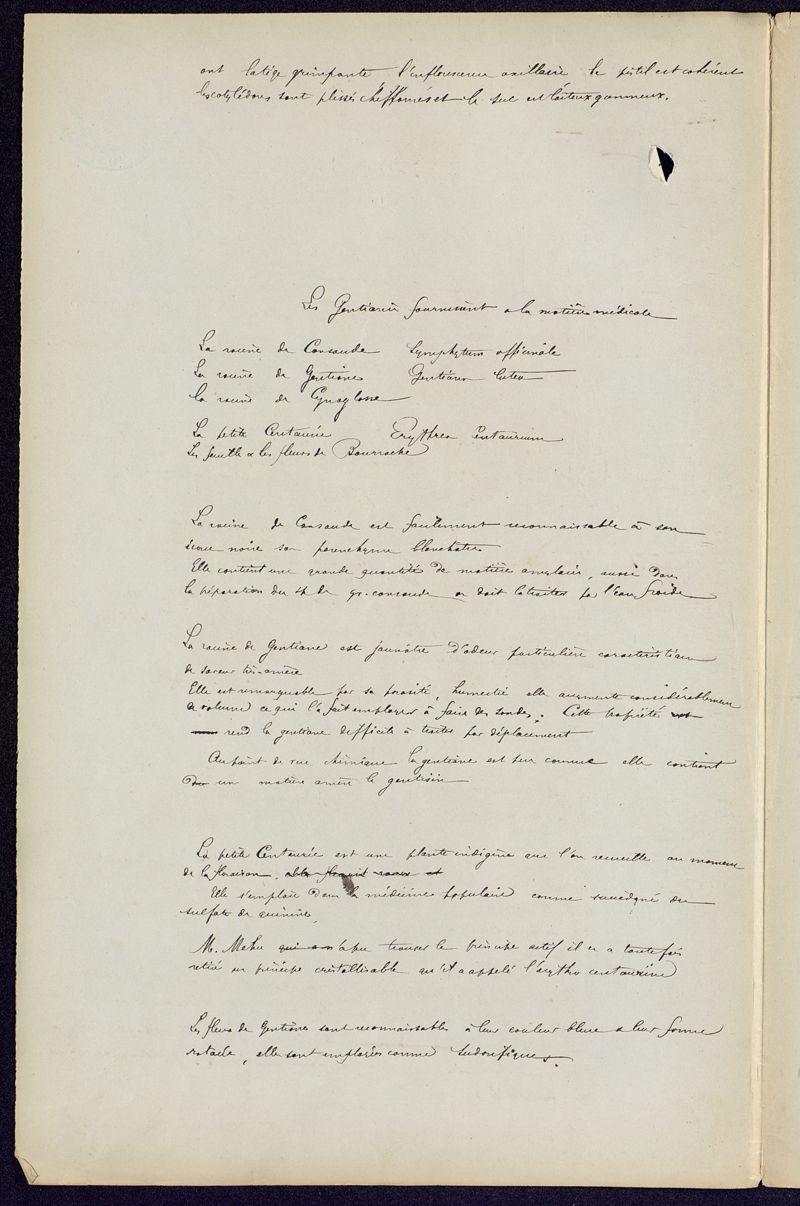 ont la tige grimpante l'inflorescence axillaire le pistil est cohérent
les cotylédons sont plissés chiffonnés et le suc est laiteux gommeux.
Les Gentianées fournissent a la matière médicale
La racine de Consoude Symphytum officinale
La racine de Gentiane Gentiana lutea
La racine de Cynoglosse
La petite Centaurée Erythrea Centaurium
Les feuilles & les fleurs de Bourrache
La racine de Consoude est facilement reconnaissable à son
écorce noire son parenchyme blanchatre
Elle contient une grande quantité de matière amylacée, aussi dans
la préparation du de gr. consoude on doit la traiter par l'eau froide
La racine de Gentiane est jaunâtre d'odeur particulière caracteristique
de saveur très-amère
Elle est remarquable par sa porosité, humectée elle augmente considérablement
de volume ce qui l'a fait employer à faire des sondes. Cette propriété
rend la gentiane difficile à traiter par déplacement
Au point de vue chimique la gentiane est peu connue elle contient
une matière amère le gentisin
La petite Centaurée est une plante indigène que l'on recueille au moment
de la floraison.
Elle s'emploie dans la médecine populaire comme succédané du
sulfate de quinine.
M. Mehu qui a n'a pu trouver le principe actif il en a toutefois
retiré un principe cristallisable qu'il a appelé l'érythro centaurine
Les fleurs de Gentianes sont reconnaissables à leur couleur bleue & leur forme
rotacée, elle sont employées comme sudorifiques.